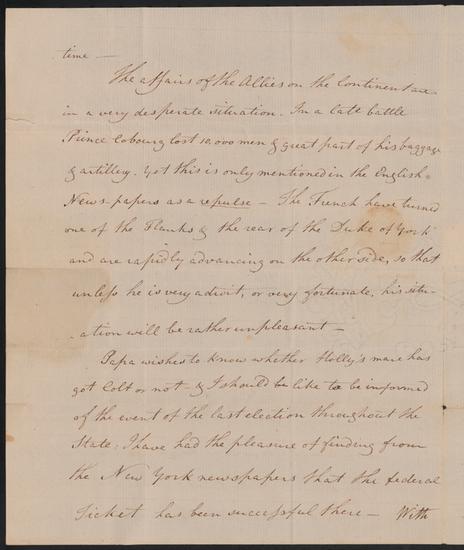 time —
The affairs of the Allies on the Continent are
in a very desperate situation. In a late battle
Prince Cobourg lost 10,000 men & great part of his baggage
& artillery. Yet this is only mentioned in the English
News-papers as a repulse — The French have turned
one of the Flanks & the rear of the Duke of York
and are rapidly advancing on the other side, so that
unless he is very adroit, or very fortunate, his situ-
-ation will be rather unpleasant —
Papa wishes to know whether Holly's mare has
got Colt or not — & I should be like to be informed
of the event of the last election throughout the
State: I have had the pleasure of finding from
the New York newspapers that the federal
Ticket has been successful there — With